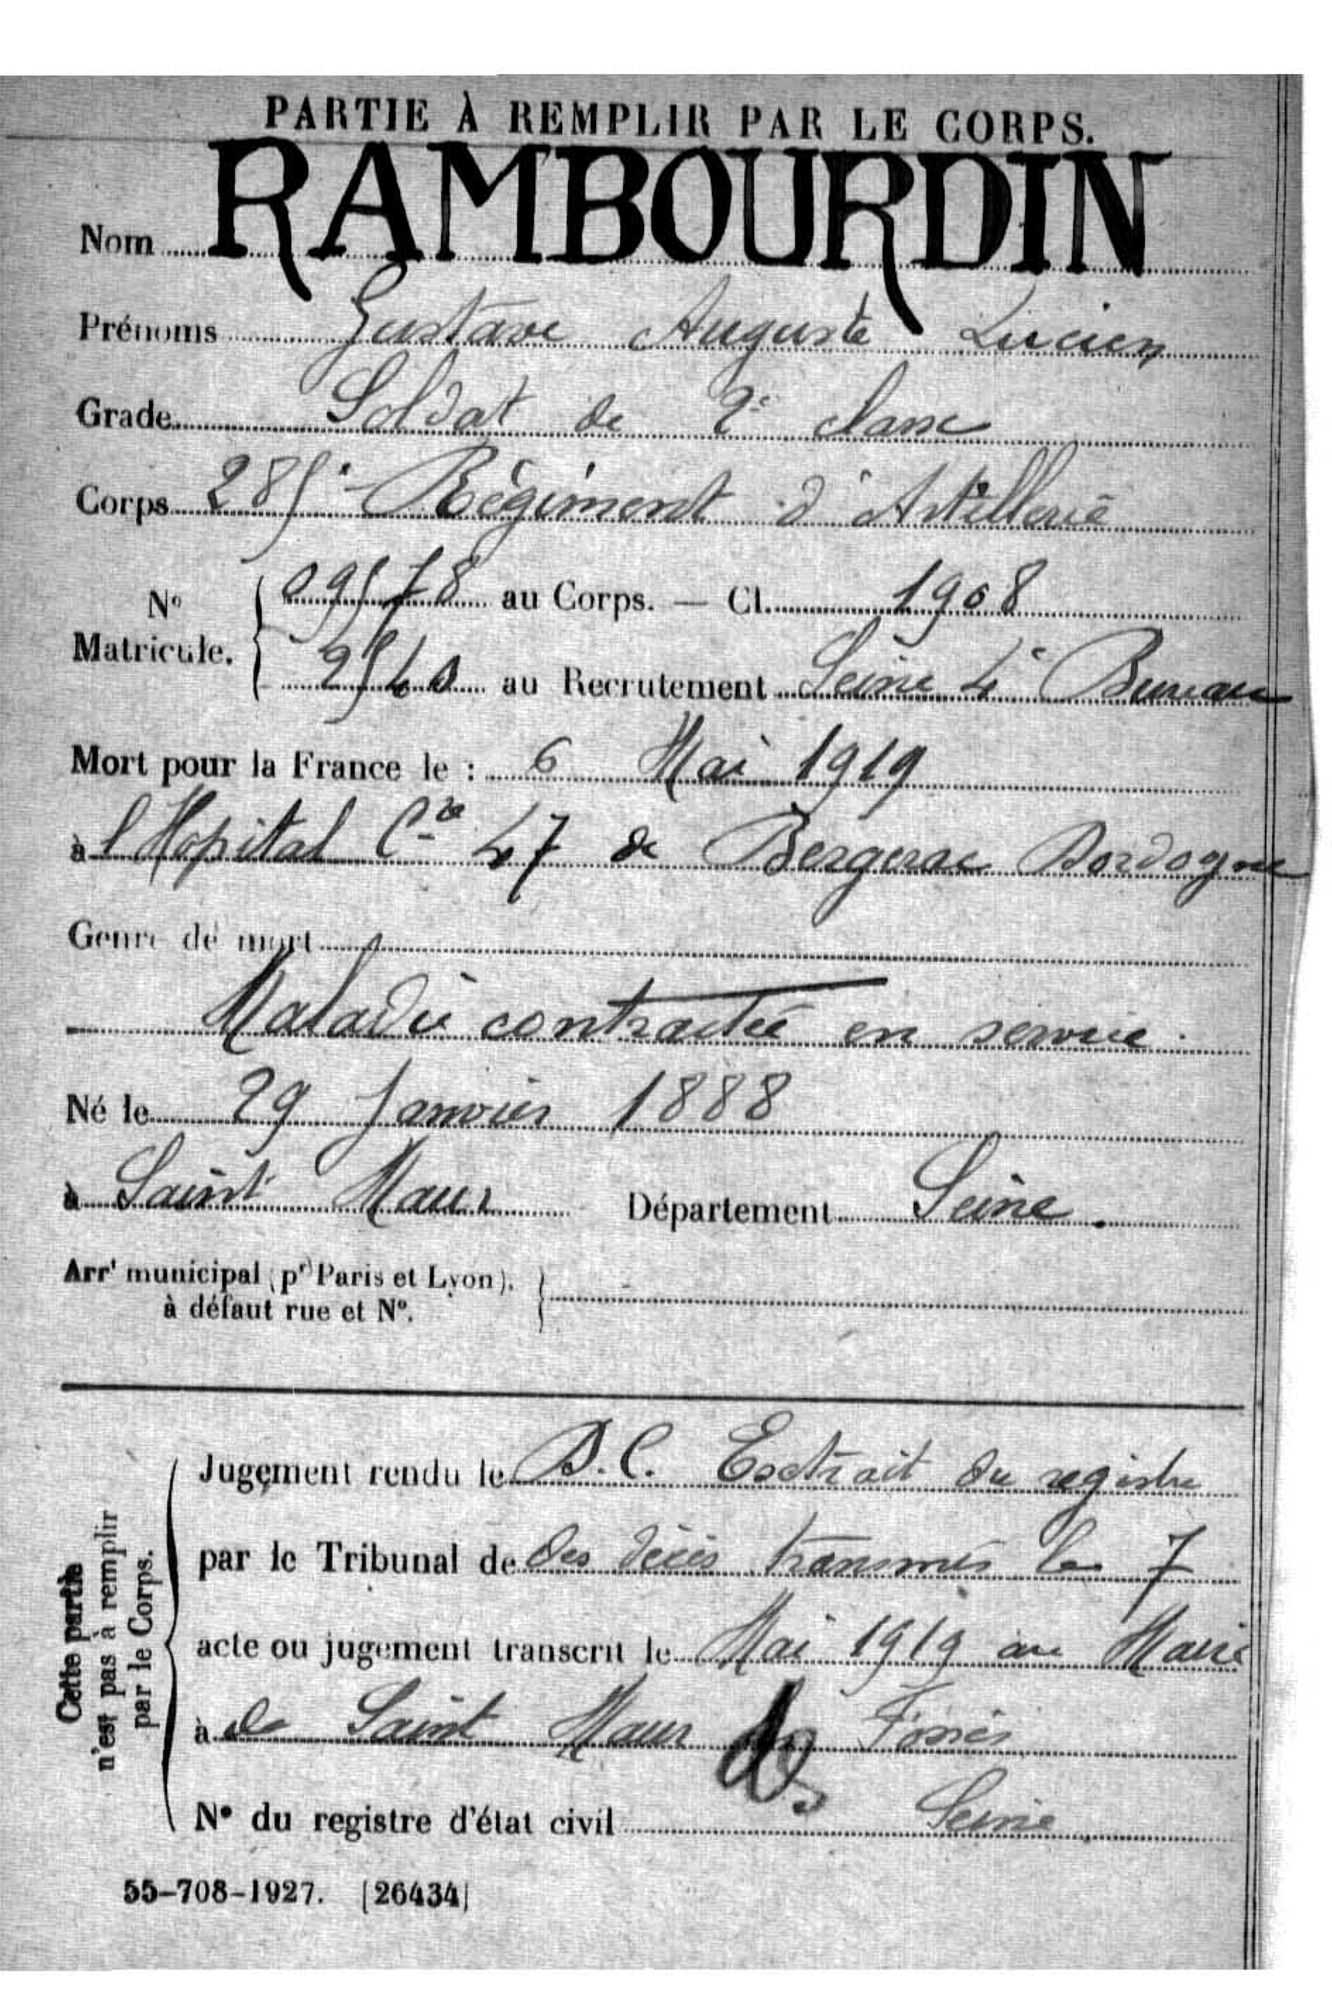 PARTIE À REMPLIR PAR LE CORPS.
Nom RAMBOURDIN
Prénoms Gustave Auguste Lucien
Grade Soldat de 2e classe
Corps 285e Régiment d'Artillerie
No Matricule. 09578 au Corps. — Cl. 1908
2540 au Recrutement Seine 4e Bureau
Mort pour la France le : 6 Mai 1919
à l'Hopital Cre 47 de Bergerac Dordogne
Genre de mort
Maladie contractée en service.
Né le 29 Janvier 1888
à Saint Maur Département Seine.
Arrt municipal (pr Paris et Lyon),
à défaut rue et No.
Cette partie
n'est pas à remplir
par le Corps.
Jugement rendu le D.C. Extrait du registre
par le Tribunal de des décès transmis le 7
acte ou jugement transcrit le Mai 1919 au Maire
à de Saint Maur des Fossés
No du registre d'état civil Seine
55-708-1927. [26434]